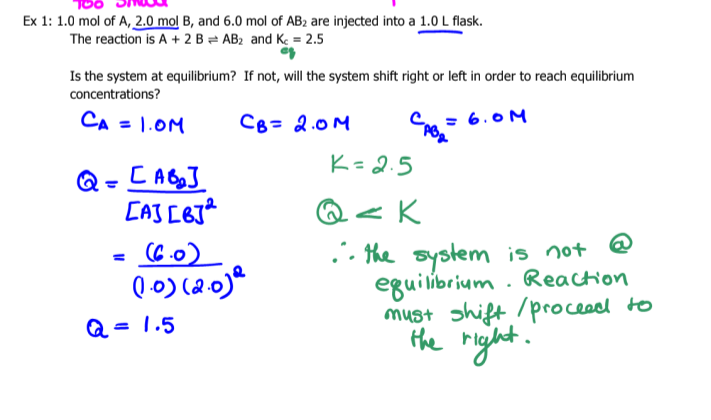 Ex 1: 1.0 mol of A, 2.0 mol B, and 6.0 mol of AB₂ are injected into a 1.0 L flask.
The reaction is A + 2 B ⇌ AB₂ and K꜀ = 2.5
eq
Is the system at equilibrium? If not, will the system shift right or left in order to reach equilibrium
concentrations?
C_A = 1.0M C_B = 2.0 M C_AB₂ = 6.0 M
K = 2.5
Q = [AB₂]
[A][B]²
Q < K
= (6.0)
(1.0)(2.0)²
∴ the system is not @
equilibrium. Reaction
must shift /proceed to
the right.
Q = 1.5